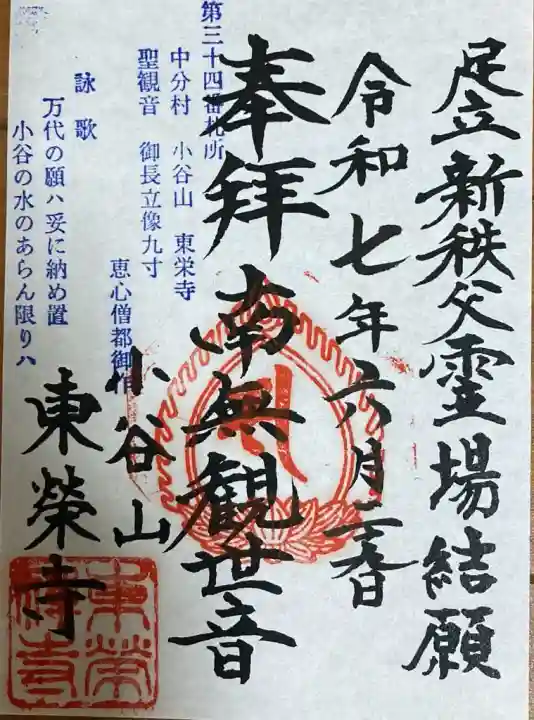 足立新秩父霊場結願
令和七年六月二八日
奉拝 南無観世音
第三十四番札所
中分村 小谷山 東栄寺
聖観音 御長立像九寸
恵心僧都御作
小谷山
詠歌
万代の願ハ妥に納め置
小谷の水のあらん限りハ
東榮寺
東榮
寺